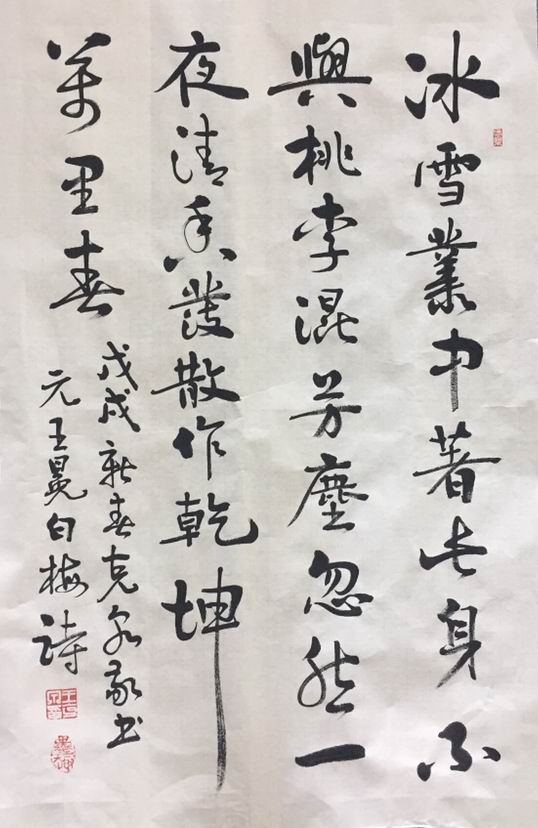 冰雪叢中著此身不
與桃李混芳塵忽然一
夜清香發散作乾坤
萬里春
戊戌新春克敬书
元王冕白梅詩